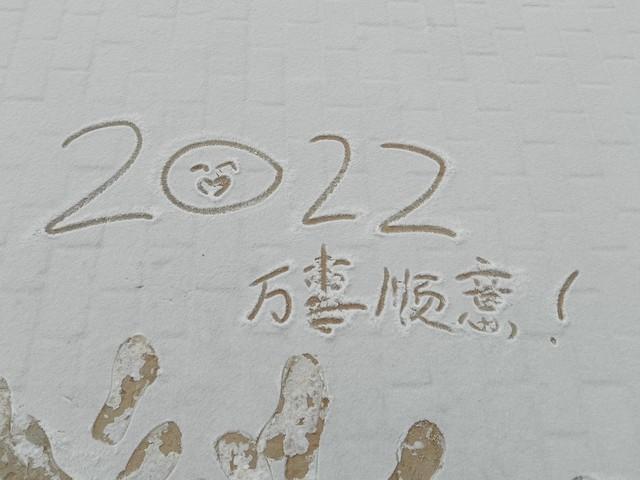 2022
万事顺意!